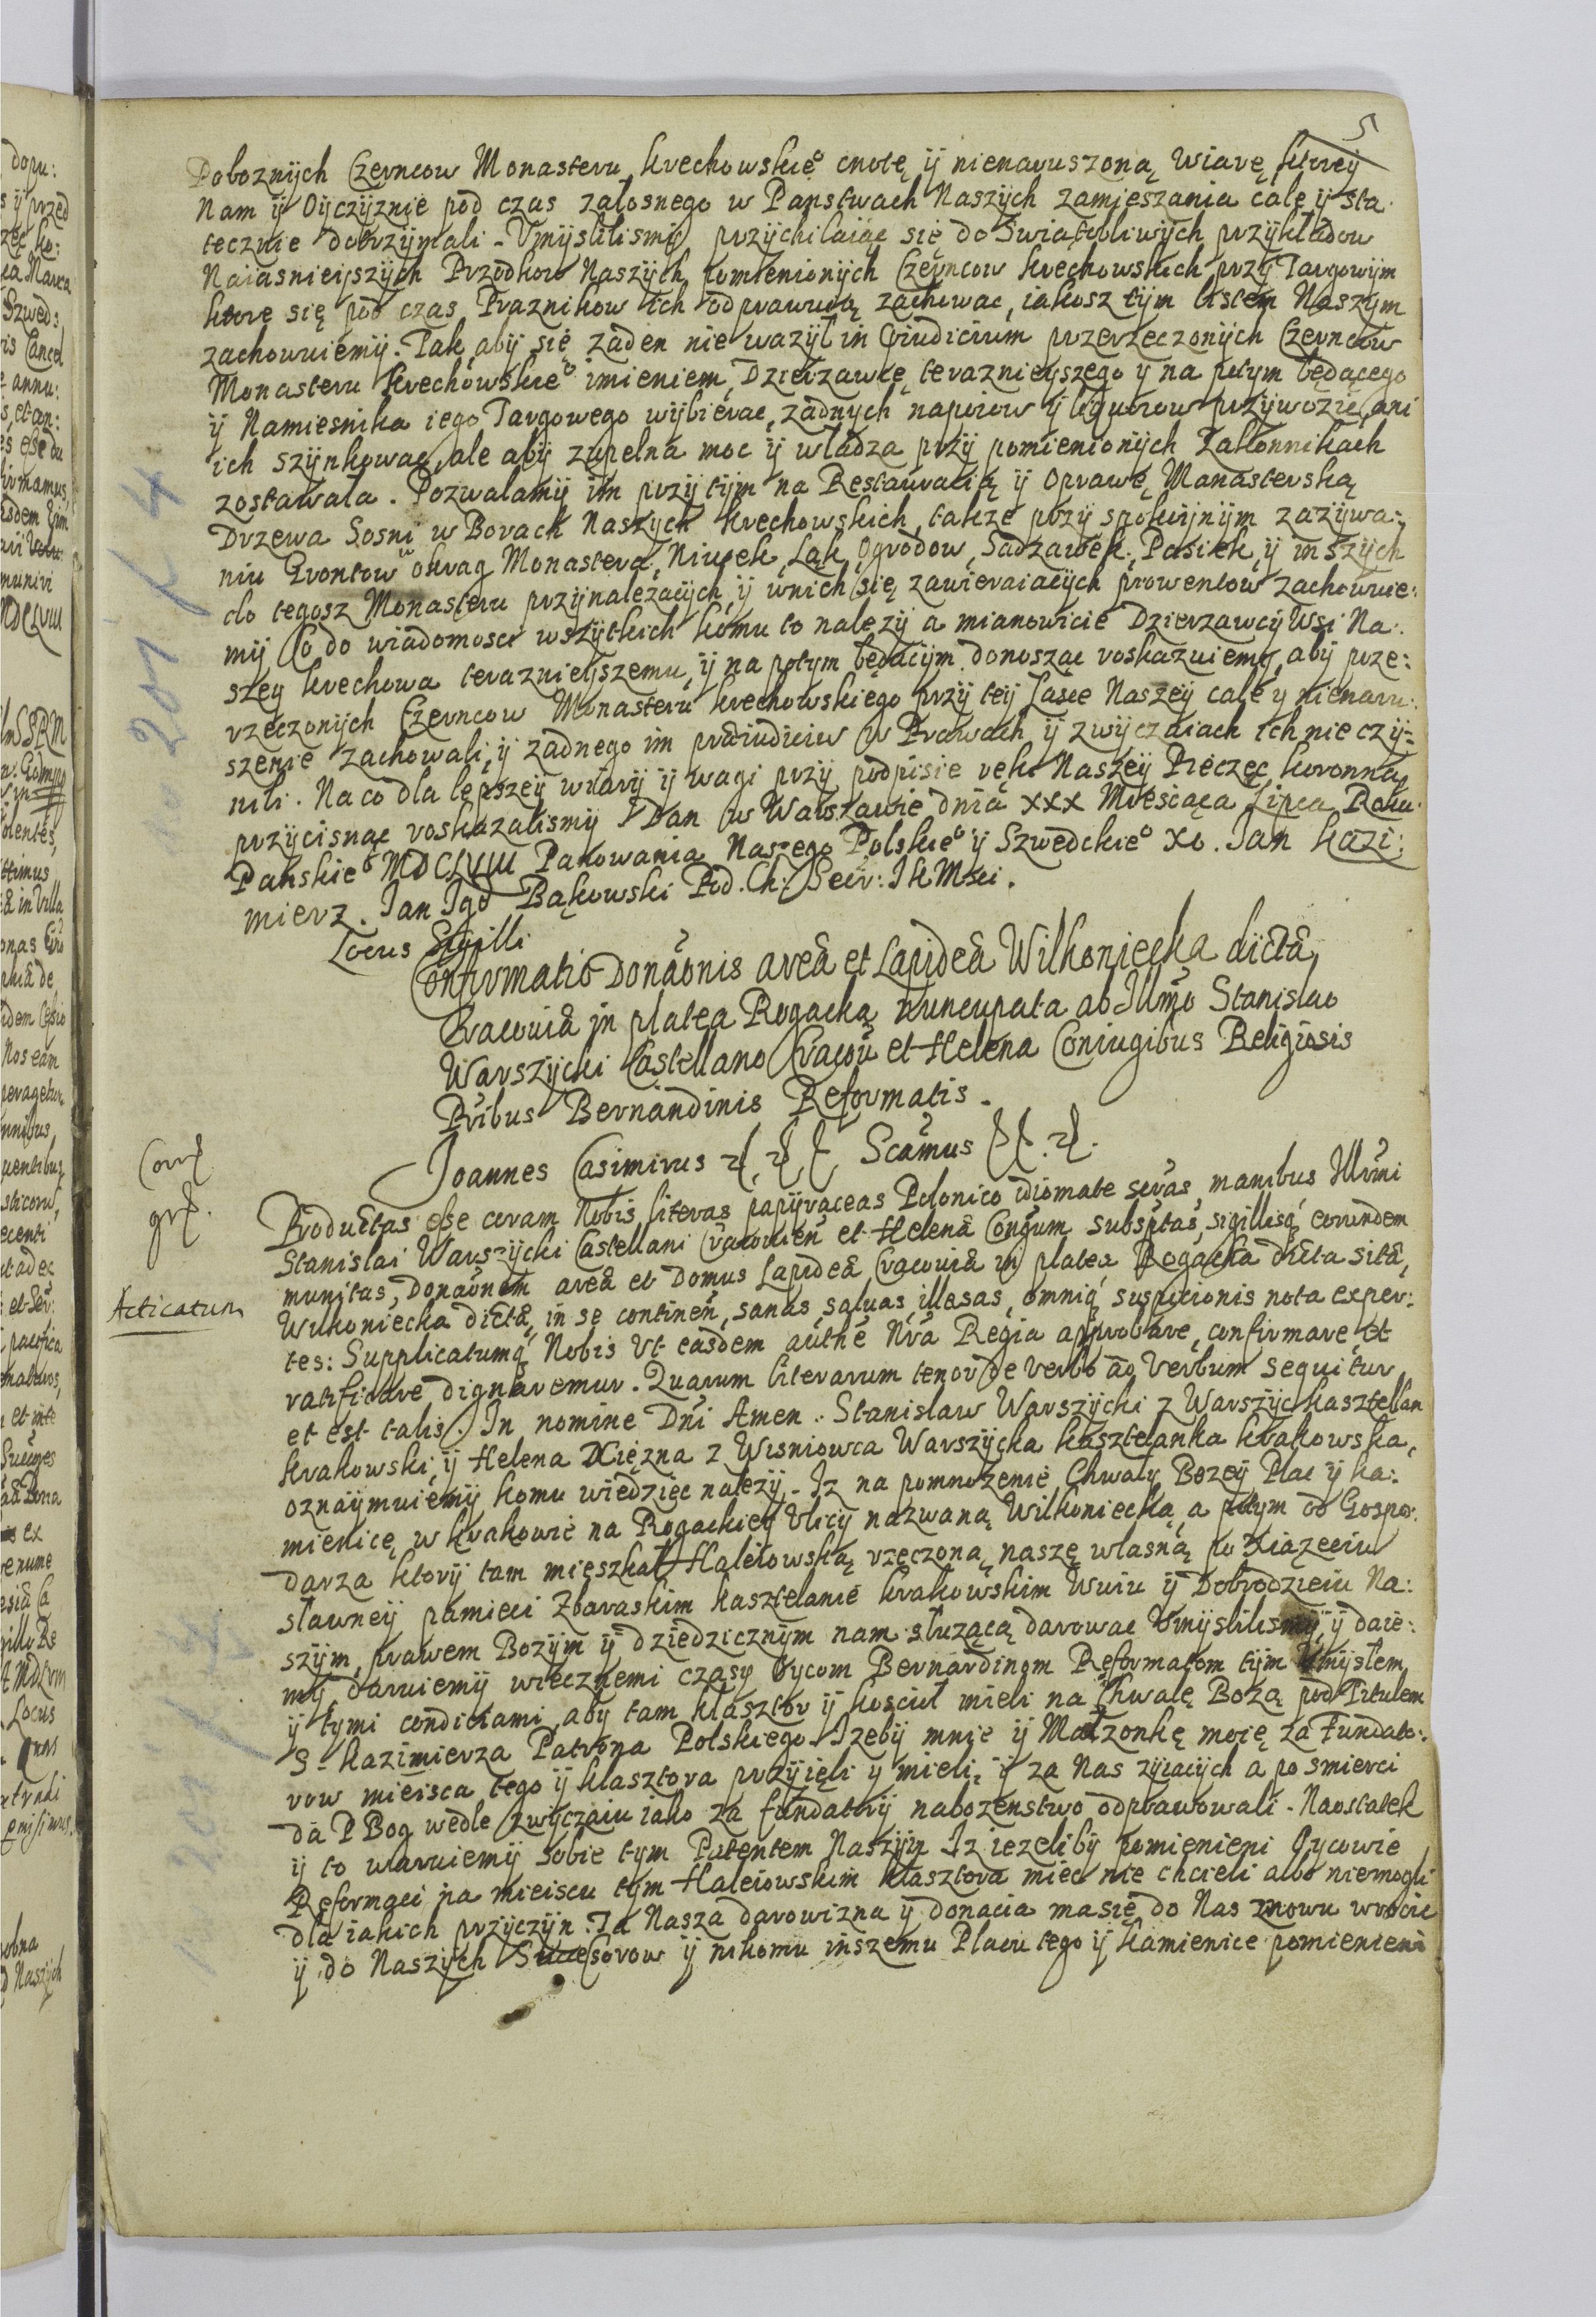 5
Poboznÿch Czerncow Monasteru Krechowskiego cnotę ÿ nienaruszoną wiarę ktoreÿ
Nam ÿ Oÿczÿznie pod czas załosnego w Panstwach Naszÿch zamieszania cale ÿ sta
tecznie dotrzÿmali. Vmÿslilismÿ przÿchilaiąc się do Swiątobliwÿch przÿkładow
Naiasnieÿszÿch Przodkow Naszÿch pomienionÿch Czerncow Krechowskich przÿ Targowÿm
ktore się pod czas Praznikow ich odprawuią zachowac, iakosz tÿm listem Naszÿm
zachowuiemÿ. Tak abÿ się zaden nie wazÿł in praeiudicium przerzeczonÿch Czerncow
Monasteru Krechowskiego imieniem Dzierzawcę teraznieÿszego ÿ na potym będącego
ÿ Namiesnika iego Targowego wÿbierac, zadnÿch napoiow ÿ liquorow przÿwozic, ani
ich szÿnkowac, ale abÿ zupełna moc ÿ władza przÿ pomienionÿch Zakonnikach
zostawała. Pozwalamÿ im przÿ tÿm na Restauratią ÿ Oprawę Manasterską
Drzewa Sosni w Borach Naszÿch Krechowskich, takze przÿ spokoÿnÿm zazÿwa:
niu Grontow w okrąg Monastera, Niwek, Łąk, Ogrodow, Sadzawek, Pasiek, ÿ inszÿch
do tegosz Monasteru przÿnalezącÿch, ÿ wnich się zawieraiącÿch prowentow zachowuie:
mÿ Co do wiadomosci wszÿtkich komu to nalezÿ a mianowicie Dzierzawcÿ Wsi Na:
szeÿ Krechowa terazneÿszemu, ÿ na potym będącÿm donosząc roskazuiemÿ, abÿ prze:
rzeczonÿch Czerncow Monasteru Krechowskiego przÿ teÿ Łasce Naszeÿ cale ÿ nienaru:
szenie zachowali, ÿ zadnego im praeiudicium w Prawach ÿ zwÿczaiach ich nie czÿ:
nili. Na co dla lepszeÿ wiarÿ ÿ wagi przÿ podpisie ręki Naszeÿ Pieczęc koronną
przÿcisnąc roskazalismÿ Dan w Warszawie dnia XXX Miesiąca Lipca Roku
Panskiego MDCLVIII Panowania Naszego Polskiego ÿ Szwedzkiego XI. Jan Kazi:
mierz. Jan Igo Bąkowski Pod. Ch: Secr: JKMsci.
Locus Sigilli
Confirmatio Donaonis areae et Lapideae Wilkoniecka dictae
Cracoviae in platea Rogacką nuncupata ab Illmo Stanislao
Warszÿcki Castellano Cracov et Helena Coniugibus Religiosis
Pribus Bernandinis Reformatis.
Joannes Casimirus Scamus
Conf
grs.
Acticatum
Productas esse coram Nobis literas papÿraceas Polonico idiomate scras, manibus Illrmi
Stanislai Warszÿcki Castellani Cracovien et Helenae Congum subsptas, sigillisq eorundem
munitas, Donaonem areae et Domus Lapideae Cracoviae in platea Rogacka dicta sitae,
Wilkoniecka dictae, in se continen, sanas, salvas, illaesas, omniq suspicionis nota exper:
tes: Supplicatumq Nobis Vt easdem authe Nra Regia approbare, confirmare, et
ratificare dignaremur. Quarum literarum tenor de Verbo ad Verbum sequitur
et est talis. In nomine Dni Amen. Stanisław Warszÿcki z Warszÿc Kasztellan
Krakowski, ÿ Helena Xięzna z Wisniowca Warszÿcka Kasztelanka Krakowska,
oznaÿmuiemÿ komu wiedziec nalezÿ. Iz na pomnozenie Chwałÿ Bozeÿ Plac ÿ ka:
mienicę, w Krakowie na Rogackieÿ Vlicÿ nazwaną Wilkoniecką, a potÿm od Gospo:
darza ktorÿ tam mieszkał Haleiowską rzeczoną, naszę własną po Xiązęciu
sławneÿ pamieci Zbaraskim Kasztelanie Krakowskim Wuiu ÿ Dobrodzieiu Na:
szÿm, prawem Bozÿm ÿ dziedzicznÿm nam słuzącą darowac Vmÿslilismÿ, ÿ daie:
mÿ daruiemÿ wiecznemi czasÿ Oÿcom Bernardinom Reformatom tÿm Vmÿsłem
ÿ tymi conditiami, aby tam klasztor ÿ kosciuł mieli na Chwałę Bozą pod Titulem
S. Kazimierza Patrona Polskiego. Izebÿ mnie ÿ Małzonkę moię za Fundato:
row mieisca tego ÿ klasztora przÿięli ÿ mieli, ÿ za Nas zÿiącÿch a po smierci
da P Bog wedle zwÿczaiu iako za fundatorÿ nabozenstwo odprawowali. Naostatek
ÿ to waruiemÿ sobie tym Patentem Naszÿm Iz iezelibÿ pomienieni Oycowie
Reformaci na mieiscu tÿm Haleiowskim klasztora miec nie chcieli albo niemogli
dla iakich przÿczÿn. Ta Nasza darowizna ÿ donacia masię do Nas znowu wrocic
ÿ do Naszÿch Successorow ÿ nikomu inszemu Placu tego ÿ Kamienice pomienieni